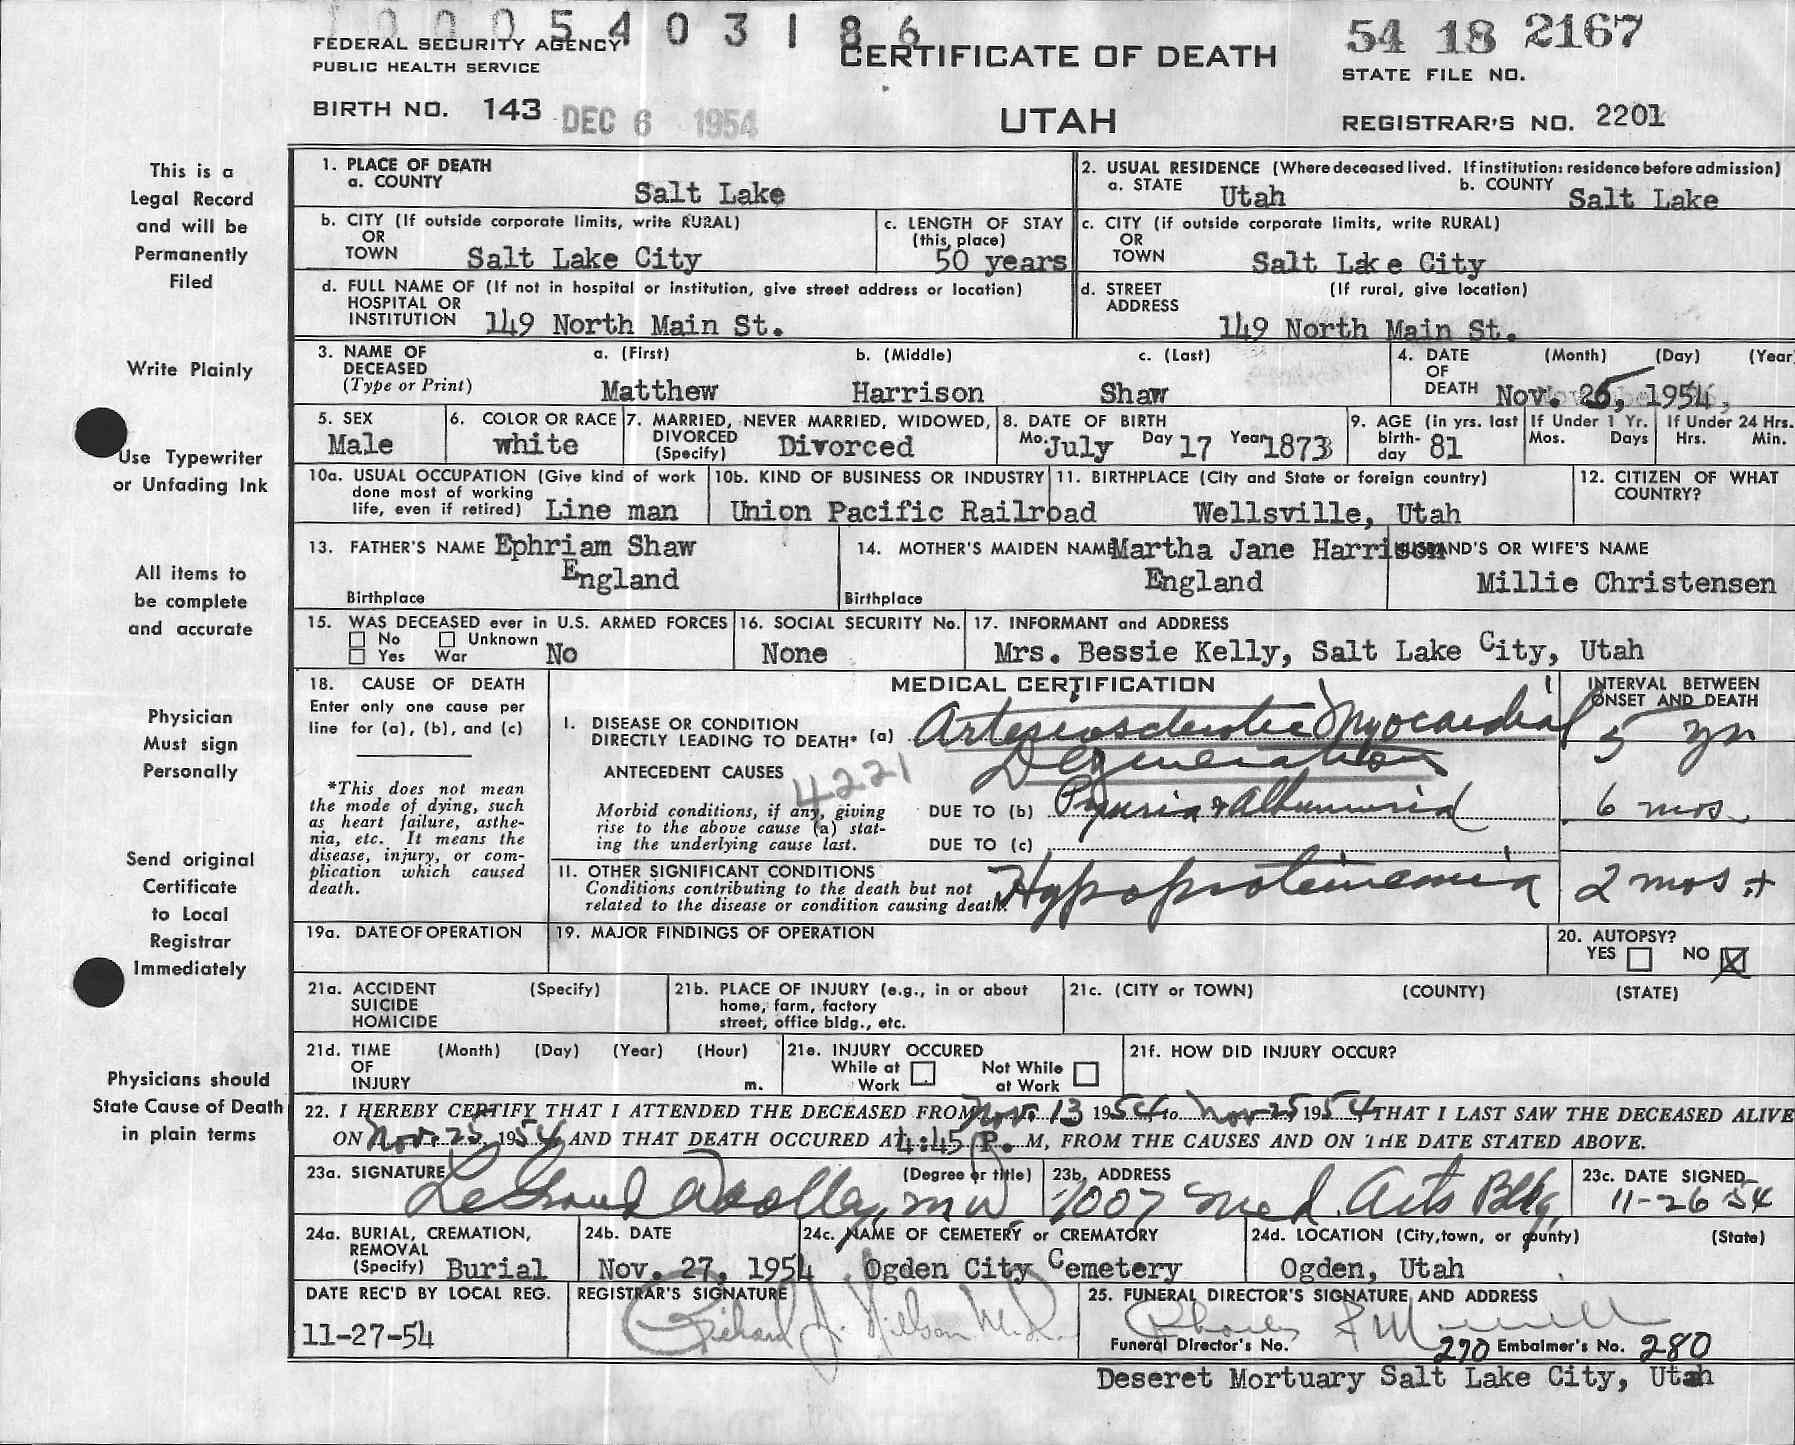 10005403186
54 18 2167
FEDERAL SECURITY AGENCY
PUBLIC HEALTH SERVICE
CERTIFICATE OF DEATH
STATE FILE NO.
BIRTH NO. 143
DEC 6 1954
UTAH
REGISTRAR'S NO. 2201
This is a
Legal Record
and will be
Permanently
Filed
Write Plainly
Use Typewriter
or Unfading Ink
All items to
be complete
and accurate
Physician
Must sign
Personally
Send original
Certificate
to Local
Registrar
Immediately
Physicians should
State Cause of Death
in plain terms
1. PLACE OF DEATH
a. COUNTY Salt Lake
2. USUAL RESIDENCE (Where deceased lived. If institution: residence before admission)
a. STATE Utah b. COUNTY Salt Lake
b. CITY (If outside corporate limits, write RURAL)
OR
TOWN Salt Lake City
c. LENGTH OF STAY
(this place)
50 years
c. CITY (if outside corporate limits, write RURAL)
OR
TOWN Salt Lake City
d. FULL NAME OF (If not in hospital or institution, give street address or location)
HOSPITAL OR
INSTITUTION 149 North Main St.
d. STREET (If rural, give location)
ADDRESS
149 North Main St.
3. NAME OF DECEASED
(Type or Print)
a. (First) b. (Middle) c. (Last)
Matthew Harrison Shaw
4. DATE OF DEATH (Month) (Day) (Year
Nov. 25, 1954
5. SEX
Male
6. COLOR OR RACE
white
7. MARRIED, NEVER MARRIED, WIDOWED,
DIVORCED
(Specify) Divorced
8. DATE OF BIRTH
Mo. July Day 17 Year 1873
9. AGE (in yrs. last
birth-
day 81
If Under 1 Yr.
Mos. Days
If Under 24 Hrs.
Hrs. Min.
10a. USUAL OCCUPATION (Give kind of work
done most of working
life, even if retired) Line man
10b. KIND OF BUSINESS OR INDUSTRY
Union Pacific Railroad
11. BIRTHPLACE (City and State or foreign country)
Wellsville, Utah
12. CITIZEN OF WHAT
COUNTRY?
13. FATHER'S NAME Ephriam Shaw
England
Birthplace
14. MOTHER'S MAIDEN NAME Martha Jane Harrison
England
Birthplace
HUSBAND'S OR WIFE'S NAME
Millie Christensen
15. WAS DECEASED ever in U.S. ARMED FORCES
No Unknown
Yes War No
16. SOCIAL SECURITY No.
None
17. INFORMANT and ADDRESS
Mrs. Bessie Kelly, Salt Lake City, Utah
18. CAUSE OF DEATH
Enter only one cause per
line for (a), (b), and (c)
*This does not mean
the mode of dying, such
as heart failure, asthe-
nia, etc. It means the
disease, injury, or com-
plication which caused
death.
MEDICAL CERTIFICATION
INTERVAL BETWEEN
ONSET AND DEATH
I. DISEASE OR CONDITION
DIRECTLY LEADING TO DEATH* (a) Arteriosclerotic Myocardial
Degeneration
5 yrs
ANTECEDENT CAUSES
4221
Morbid conditions, if any, giving
rise to the above cause (a) stat-
ing the underlying cause last.
DUE TO (b) Pyuria & Albuminuria
6 mos.
DUE TO (c)
II. OTHER SIGNIFICANT CONDITIONS
Conditions contributing to the death but not
related to the disease or condition causing death.
Hypoproteinemia
2 mos +
19a. DATE OF OPERATION
19. MAJOR FINDINGS OF OPERATION
20. AUTOPSY?
YES NO X
21a. ACCIDENT (Specify)
SUICIDE
HOMICIDE
21b. PLACE OF INJURY (e.g., in or about
home, farm, factory
street, office bldg., etc.
21c. (CITY or TOWN) (COUNTY) (STATE)
21d. TIME (Month) (Day) (Year) (Hour)
OF
INJURY m.
21e. INJURY OCCURED
While at Work Not While at Work
21f. HOW DID INJURY OCCUR?
22. I HEREBY CERTIFY THAT I ATTENDED THE DECEASED FROM Nov. 13 1954 to Nov 25 1954 THAT I LAST SAW THE DECEASED ALIVE
ON Nov. 25, 1954 AND THAT DEATH OCCURED AT 4:45 P. M, FROM THE CAUSES AND ON THE DATE STATED ABOVE.
23a. SIGNATURE (Degree or title)
LeGrand Woolley, M D.
23b. ADDRESS
1007 Med. Arts Bldg.
23c. DATE SIGNED
11-26 54
24a. BURIAL, CREMATION,
REMOVAL
(Specify) Burial
24b. DATE
Nov. 27, 1954
24c. NAME OF CEMETERY or CREMATORY
Ogden City Cemetery
24d. LOCATION (City, town, or county) (State)
Ogden, Utah
DATE REC'D BY LOCAL REG.
11-27-54
REGISTRAR'S SIGNATURE
Richard J. Nielson M.D.
25. FUNERAL DIRECTOR'S SIGNATURE AND ADDRESS
Funeral Director's No. 290 Embalmer's No. 280
Deseret Mortuary Salt Lake City, Utah